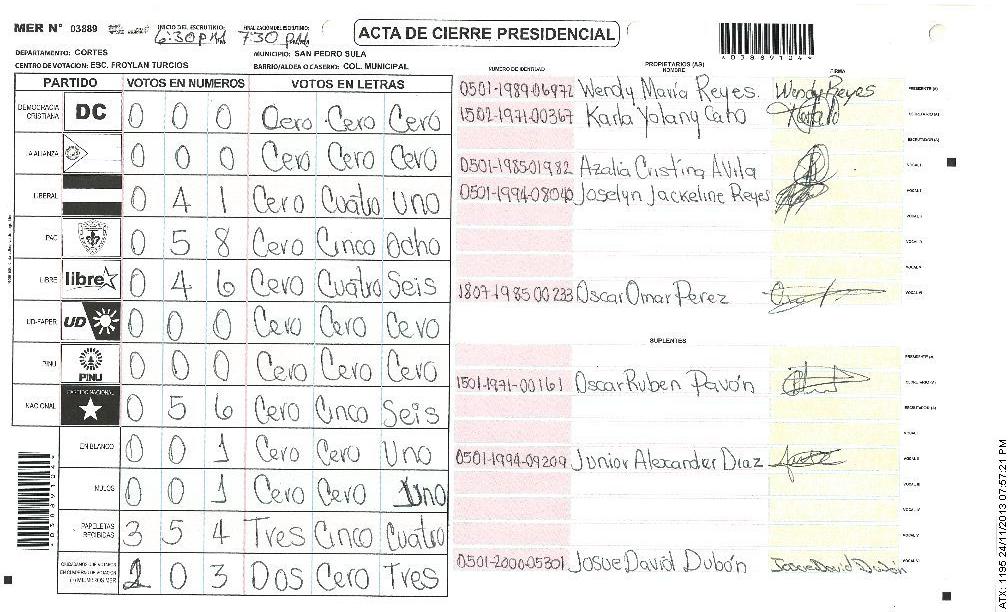 MER Nº 03889 INICIO DEL ESCRUTINIO: 6:30 PM FINALIZACION DEL ESCRUTINIO: 7:30 PM
ACTA DE CIERRE PRESIDENCIAL
*03889104*
DEPARTAMENTO: CORTES MUNICIPIO: SAN PEDRO SULA
CENTRO DE VOTACION: ESC. FROYLAN TURCIOS BARRIO/ALDEA O CASERIO: COL. MUNICIPAL
PARTIDO VOTOS EN NUMEROS VOTOS EN LETRAS
DEMOCRACIA CRISTIANA DC 0 0 0 Cero Cero Cero
ALIANZA 0 0 0 Cero Cero Cero
LIBERAL 0 4 1 Cero Cuatro Uno
PAC 0 5 8 Cero Cinco Ocho
LIBRE libre 0 4 6 Cero Cuatro Seis
UD-FAPER UD 0 0 0 Cero Cero Cero
PINU PINU 0 0 0 Cero Cero Cero
NACIONAL PARTIDO NACIONAL 0 5 6 Cero Cinco Seis
EN BLANCO 0 0 1 Cero Cero Uno
NULOS 0 0 1 Cero Cero Uno
PAPELETAS RECIBIDAS 3 5 4 Tres Cinco Cuatro
2 0 3 Dos Cero Tres
*03889104*
NUMERO DE IDENTIDAD PROPIETARIOS (AS) NOMBRE FIRMA
0501-1989-06972 Wendy María Reyes. Wendy Reyes PRESIDENTE (A)
1502-1971-00367 Karla Yolany Cano SECRETARIO (A)
ESCRUTADOR (A)
0501-1985-01982 Azalia Cristina Avila VOCAL I
0501-1994-08040 Joselyn Jackeline Reyes VOCAL II
VOCAL III
VOCAL IV
VOCAL V
1807-1985 00233 Oscar Omar Perez VOCAL VI
SUPLENTES
PRESIDENTE (A)
1501-1971-00161 Oscar Ruben Pavón SECRETARIO (A)
ESCRUTADOR (A)
VOCAL I
0501-1994-09209 Junior Alexander Diaz VOCAL II
VOCAL III
VOCAL IV
VOCAL V
0501-2000-05301 Josue David Dubón Josue David Dubón VOCAL VI
ATX: 1195 24/11/2013 07:57:21 PM